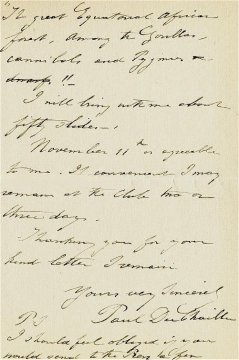 "The great Equatorial African
forest, Among the Gorillas,
cannibals and Pygmies or
dwarfs"
I will bring with me about
fifty slides.
November 11th is agreeable
to me. If convenient I may
remain at the Club two or
three days.
Thanking you for your
kind letter I remain
Yours very sincerely
Paul Du Chaillu
P.S
I should feel obliged if you
would send to the